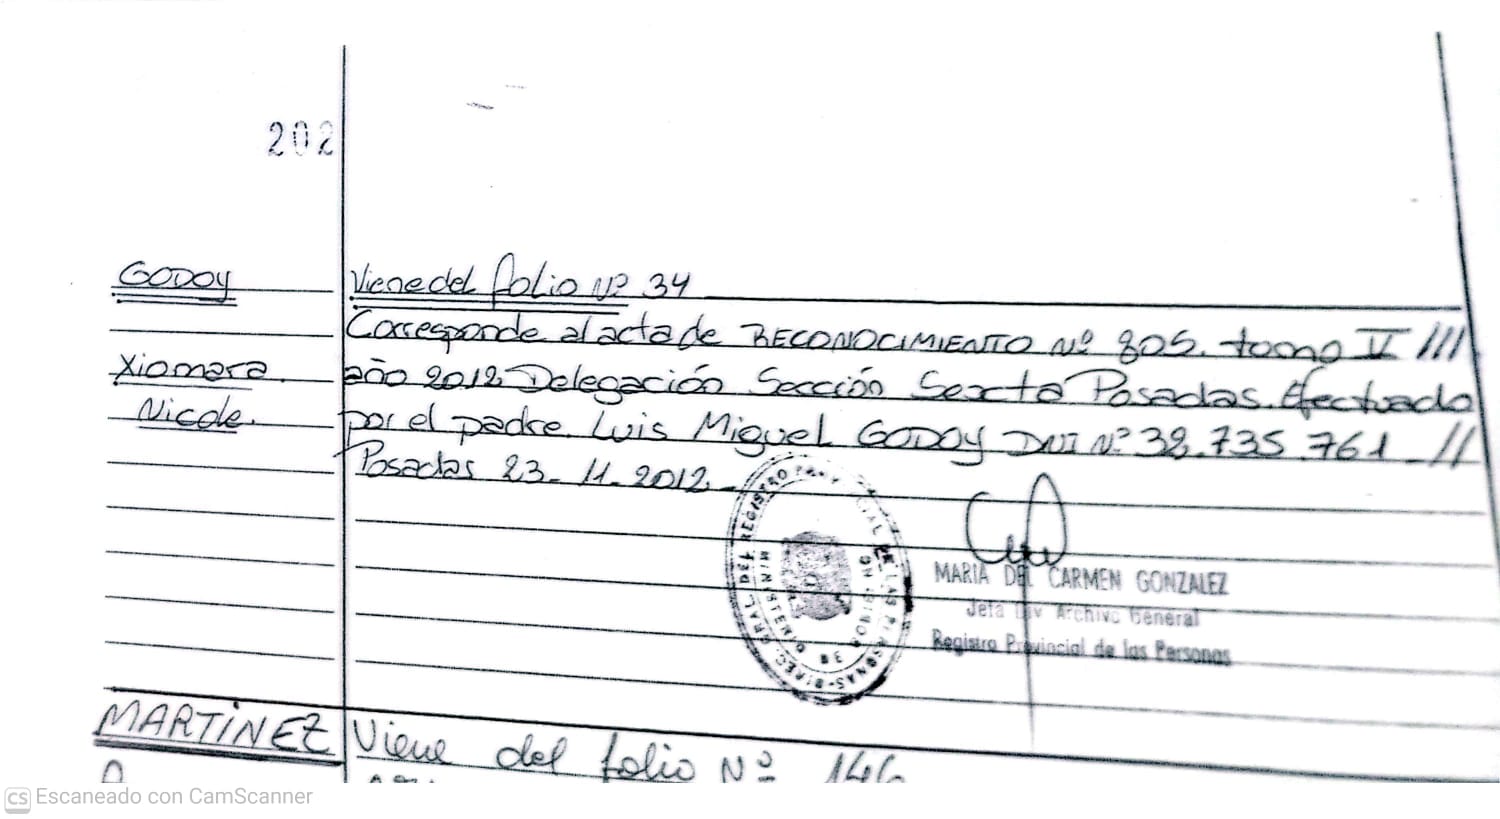 202
GODOY
Xiomara
Nicole.
Viene del folio Nº 34
Corresponde al acta de RECONOCIMIENTO Nº 805. tomo V ///
año 2012 Delegación Sección Sexta Posadas. Efectuado
por el padre. Luis Miguel GODOY DNI Nº 38.735.761 _//
Posadas 23. 11. 2012_
MINISTERIO DE GOBIERNO
MARIA DEL CARMEN GONZALEZ
Jefa Div Archivo General
Registro Provincial de las Personas
MARTINEZ
Viene del folio Nº 146
CS Escaneado con CamScanner